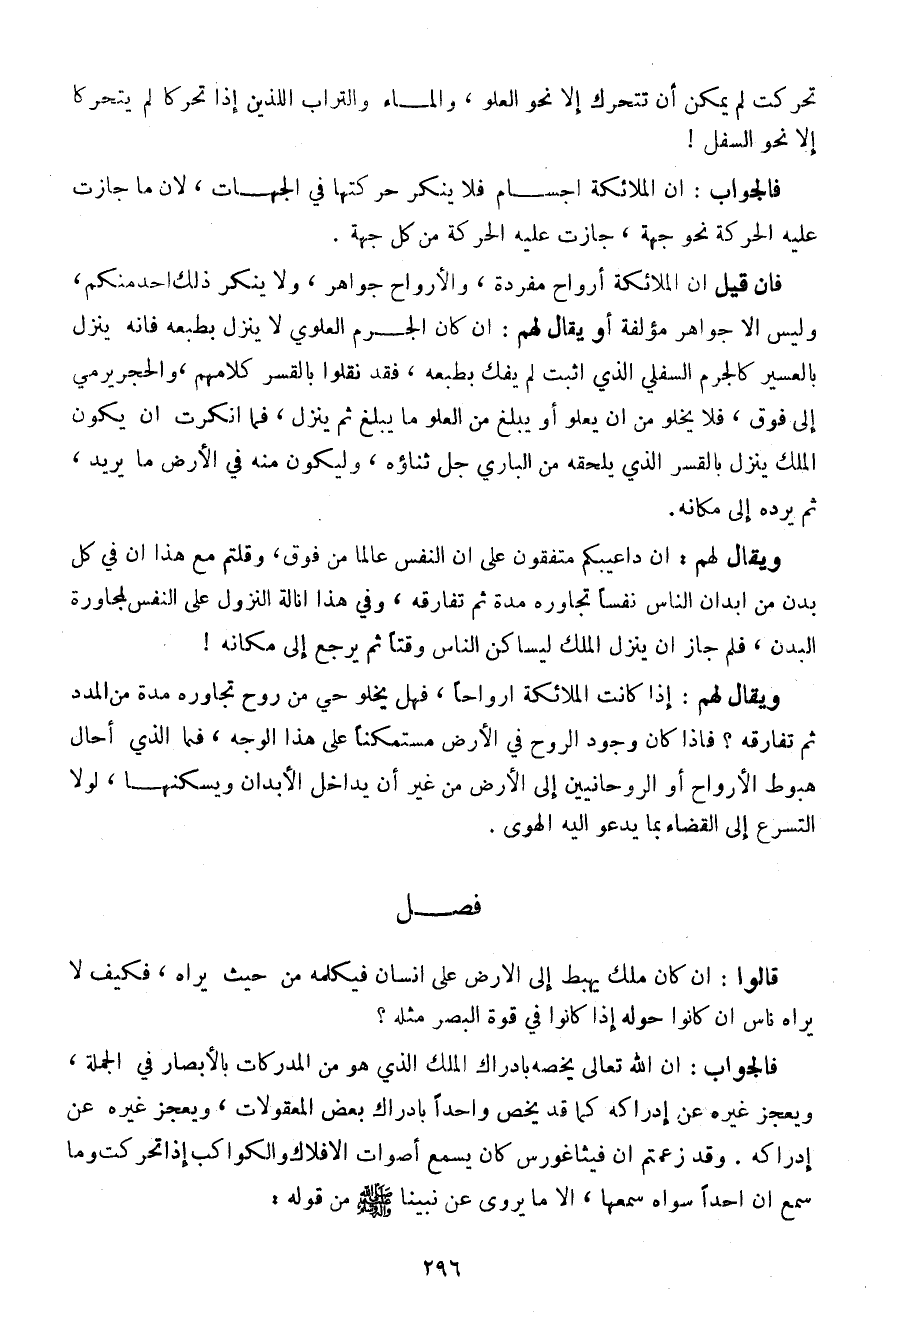 تحركت لم يمكن أن تتحرك إلا نحو العلو ، والمـــاء والتراب اللذين إذا تحركا لم يتحركا
إلا نحو السفل !
فالجواب : ان الملائكة اجســام فلا ينكر حركتها في الجهات ، لان ما جازت
عليه الحركة نحو جهة ، جازت عليه الحركة من كل جهة .
فان قيل ان الملائكة أرواح مفردة ، والأرواح جواهر ، ولا ينكر ذلك احد منكم ،
وليس الا جواهر مؤلفة أو يقال لهم : ان كان الجــرم العلوي لا ينزل بطبعه فانه ينزل
بالعسير كالجرم السفلي الذي اثبت لم يفك بطبعه ، فقد نقلوا بالقسر كلامهم ، والحجر يرمي
إلى فوق ، فلا يخلو من ان يعلو أو يبلغ من العلو ما يبلغ ثم ينزل ، فما انكرت ان يكون
الملك ينزل بالقسر الذي يلحقه من الباري جل ثناؤه ، وليكون منه في الأرض ما يريد ،
ثم يرده إلى مكانه .
ويقال لهم : ان داعيبكم متفقون على ان النفس عالما من فوق ، وقلتم مع هذا ان في كل
بدن من ابدان الناس نفساً تجاوره مدة ثم تفارقه ، وفي هذا انالة النزول على النفس لمجاورة
البدن ، فلم جاز ان ينزل الملك ليساكن الناس وقتاً ثم يرجع إلى مكانه !
ويقال لهم : إذا كانت الملائكة ارواحاً ، فهل يخلو حي من روح تجاوره مدة من المدد
ثم تفارقه ؟ فاذا كان وجود الروح في الأرض مستمكناً على هذا الوجه ، فما الذي أحال
هبوط الأرواح أو الروحانيين إلى الأرض من غير أن يداخل الأبدان ويسكنهــا ، لولا
التسرع إلى القضاء بما يدعو اليه الهوى .
فصــل
قالوا : ان كان ملك يهبط إلى الارض على انسان فيكلمه من حيث يراه ، فكيف لا
يراه ناس ان كانوا حوله إذا كانوا في قوة البصر مثله ؟
فالجواب : ان الله تعالى يخصه بادراك الملك الذي هو من المدركات بالأبصار في الجملة ،
ويعجز غيره عن إدراكه كما قد يخص واحداً بادراك بعض المعقولات ، ويعجز غيره عن
إدراكه . وقد زعمتم ان فيثاغورس كان يسمع أصوات الافلاك والكواكب إذا تحركت وما
سمع ان احداً سواه سمعها ، الا ما يروى عن نبينا ﷺ من قوله :
٢٩٦